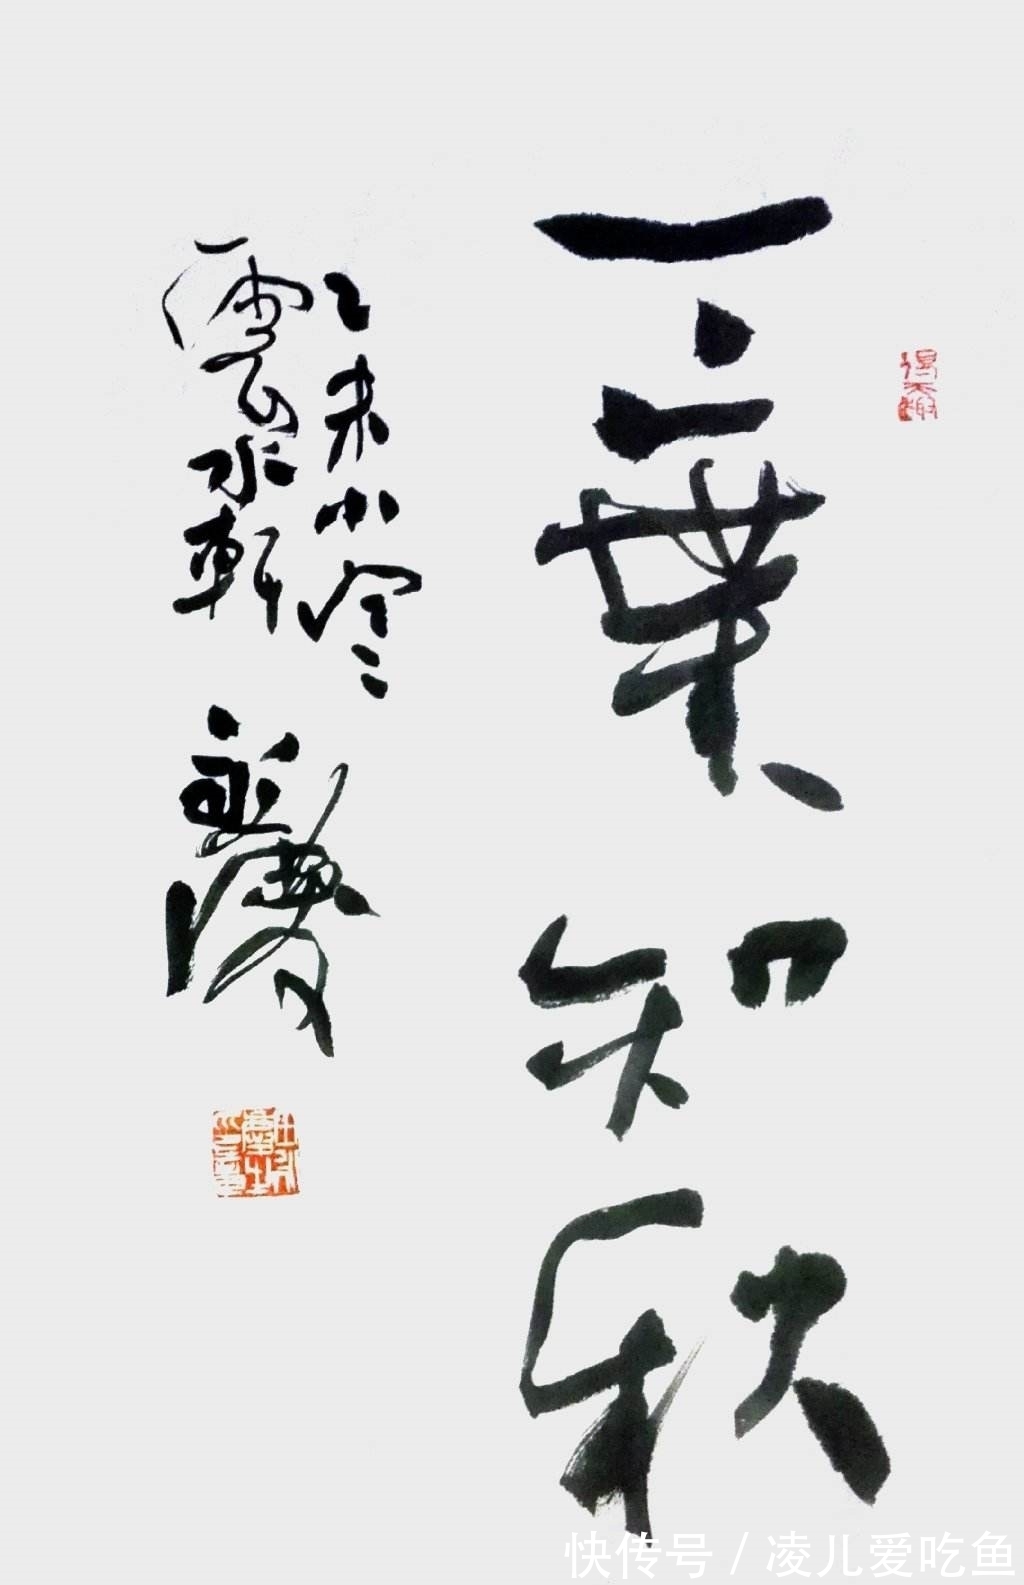 得天趣
一葉知秋
乙未小寒
雲水軒
快传号 / 凌儿爱吃鱼